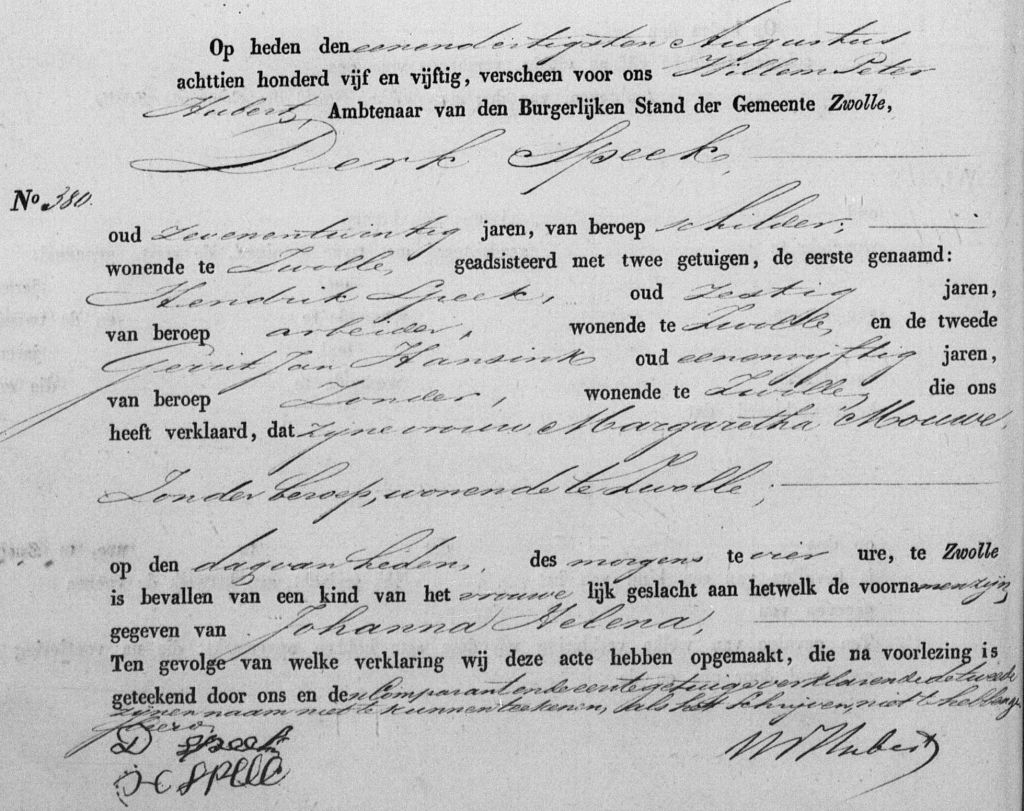 Op heden den eenendertigsten Augustus
achttien honderd vijf en vijftig, verscheen voor ons Willem Peter
Hubert, Ambtenaar van den Burgerlijken Stand der Gemeente Zwolle,
Derk Speek,
No. 380.
oud zevenentwintig jaren, van beroep schilder,
wonende te Zwolle, geadsisteerd met twee getuigen, de eerste genaamd:
Hendrik Speek, oud zestig jaren,
van beroep arbeider, wonende te Zwolle, en de tweede
Gerrit Jan Hansink oud eenenvyftig jaren,
van beroep zonder, wonende te Zwolle, die ons
heeft verklaard, dat zyne vrouw Margaretha Mouwe,
Zonder beroep, wonende te Zwolle,
op den dag van heden, des morgens te vier ure, te Zwolle
is bevallen van een kind van het vrouwe lijk geslacht aan hetwelk de voornamen zijn
gegeven van Johanna Helena,
Ten gevolge van welke verklaring wij deze acte hebben opgemaakt, die na voorlezing is
geteekend door ons en den Comparant en de eerste getuige verklarende de tweede
zynen naam niet te kunnen teekenen, als het schryven niet te hebben ge
leerd
D Speek
H SPEEK
WP Hubert